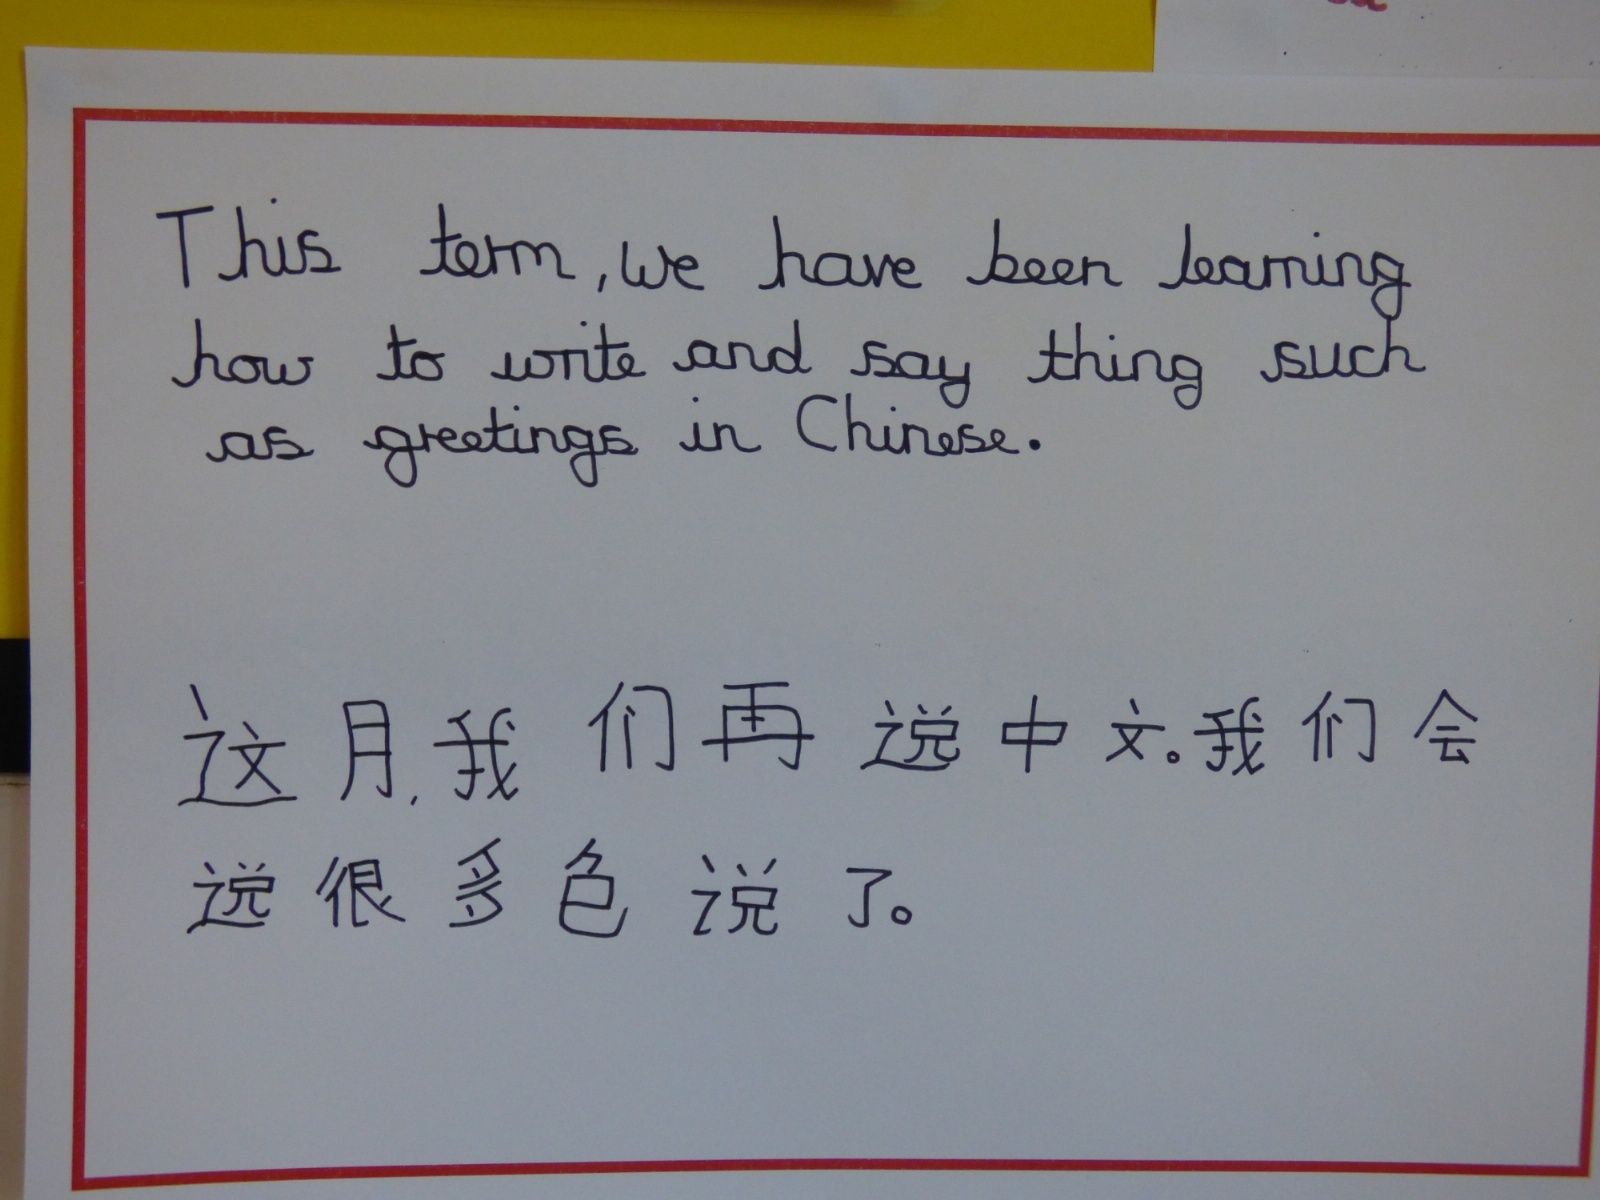 This term, we have been learning
how to write and say thing such
as greetings in Chinese.
这月,我们再说中文。我们会
说很多色说了。